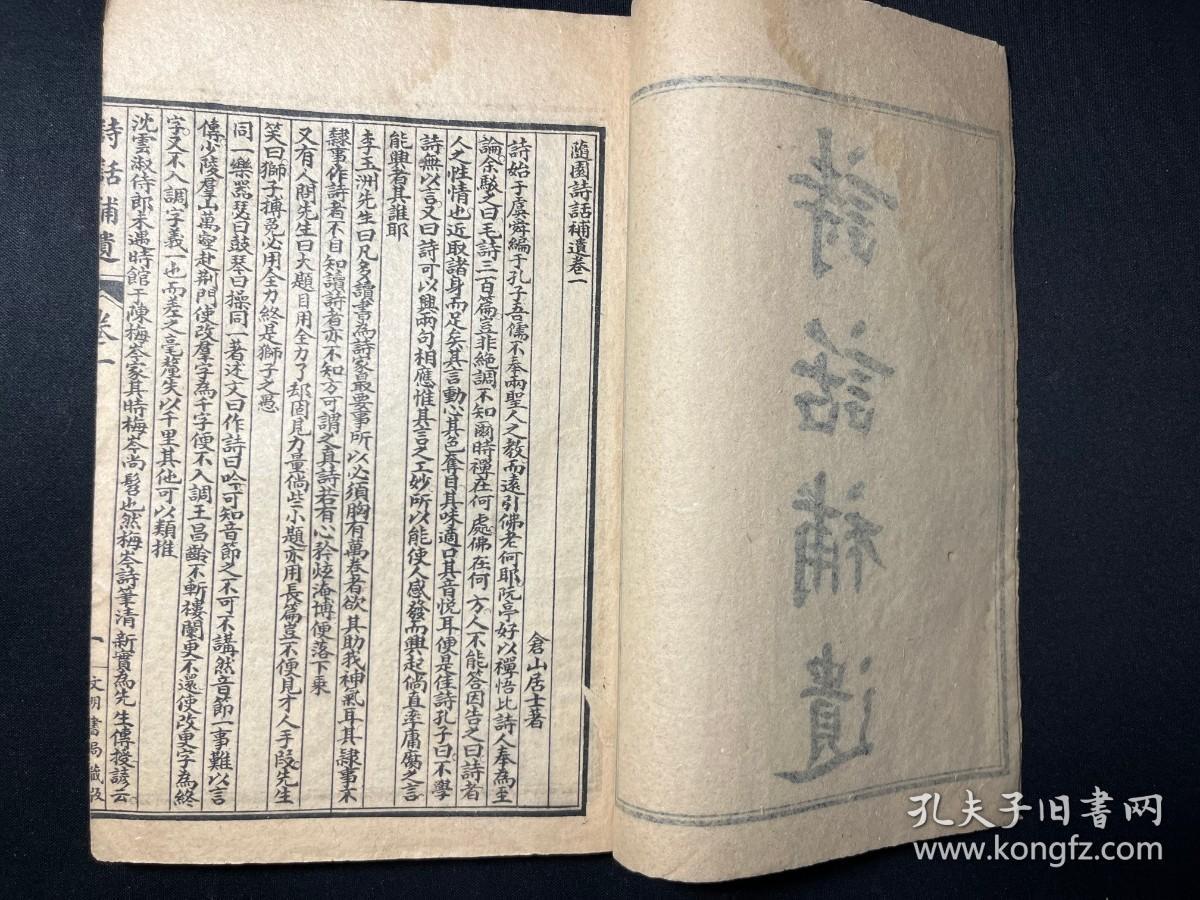 詩話補遺
隨園詩話補遺卷一
倉山居士著
詩始于虞舜編于孔子吾儒不奉兩聖人之教而遠引佛老何耶阮亭好以禪悟比詩人奉為至
論余駁之曰毛詩三百篇豈非絕調不知爾時禪在何處佛在何方人不能答因告之曰詩者
人之性情也近取諸身而足矣其言動心其色奪目其味適口其音悅耳便是佳詩孔子曰不學
詩無以言又曰詩可以興兩句相應惟其言之工妙所以能使人感發而興起倘直率庸腐之言
能興者其誰耶
李玉洲先生曰凡多讀書為詩家最要事所以必須胸有萬卷者欲其助我神氣耳其隸事不
隸事作詩者不自知讀詩者亦不知方可謂之真詩若有心矜炫淹博便落下乘
又有人問先生曰大題目用全力了却固見力量倘些小題亦用長篇豈不便見才人手段先生
笑曰獅子搏兔必用全力終是獅子之愚
同一樂器瑟曰鼓琴曰操同一著述文曰作詩曰吟可知音節之不可不講然音節一事難以言
傳少陵羣山萬壑赴荆門使改羣字為千字便不入調王昌齡不斬樓蘭更不還使改更字為終
字又不入調字義一也而差之毫釐失以千里其他可以類推
沈雲淑侍郎未遇時館于陳梅岑家其時梅岑尚髫也然梅岑詩筆清新實為先生傳授諺云
詩話補遺 卷一 一 文明書局藏板
孔夫子旧书网
www.kongfz.com